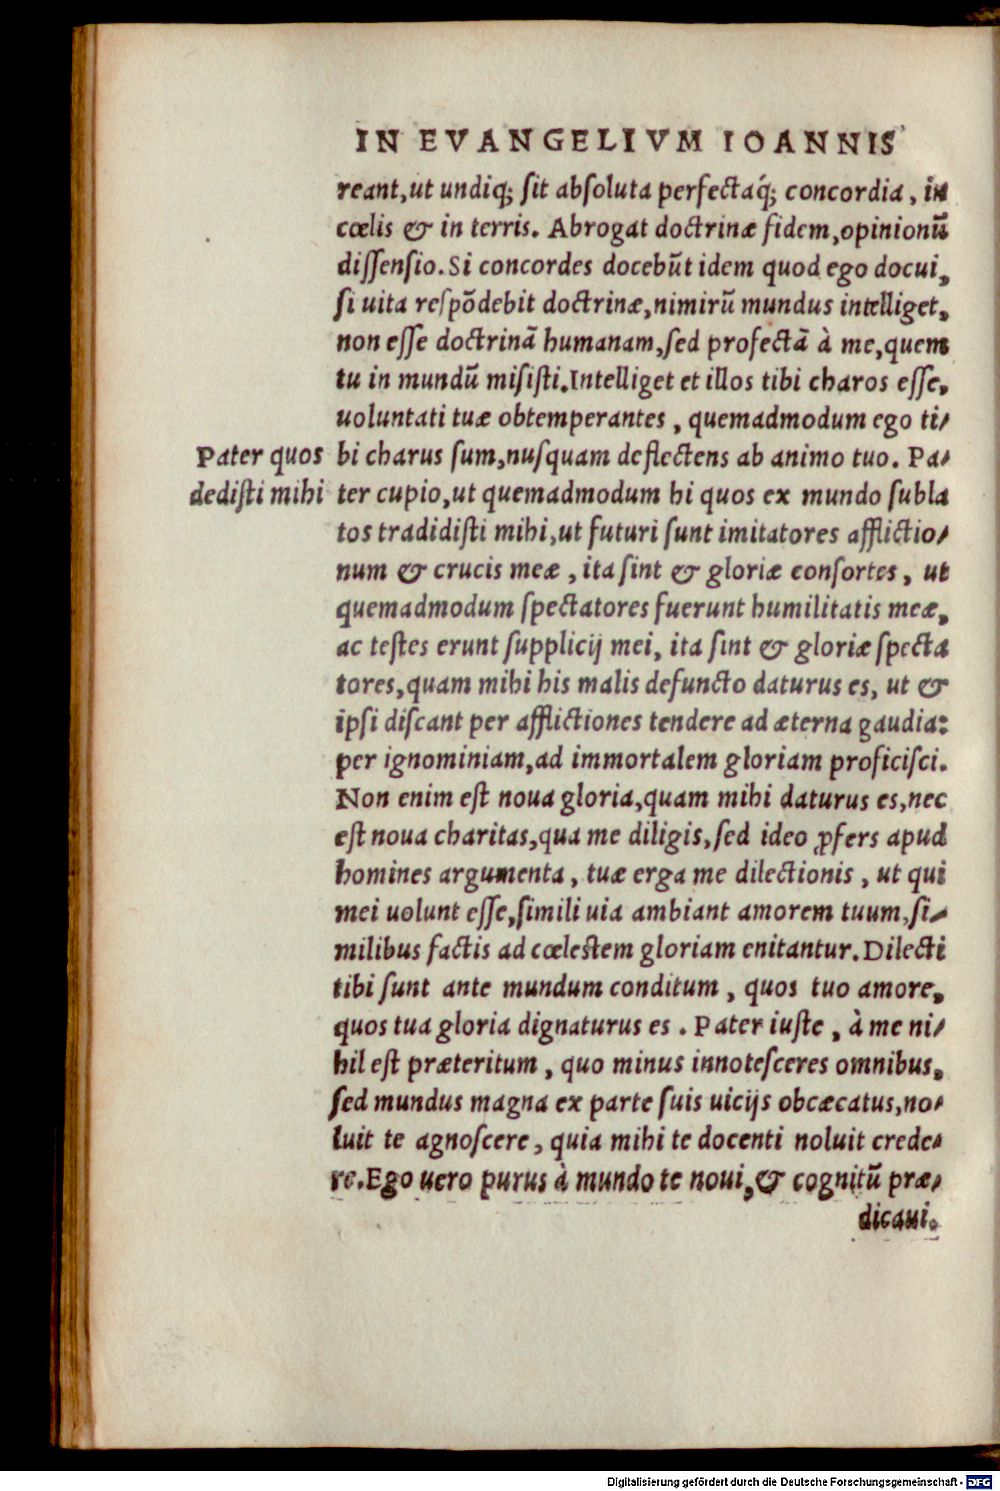 IN EVANGELIVM IOANNIS
reant,ut undiq; sit absoluta perfectaq́; concordia, in
cœlis & in terris. Abrogat doctrinæ fidem,opinionũ
dissensio. Si concordes docebũt idem quod ego docui,
si uita respõdebit doctrinæ,nimirũ mundus intelliget,
non esse doctrinã humanam,sed profectã à me,quem
tu in mundũ misisti.Intelliget et illos tibi charos esse,
uoluntati tuæ obtemperantes, quemadmodum ego ti/
Pater quos
dedisti mihi
bi charus sum,nusquam deflectens ab animo tuo. Pa/
ter cupio,ut quemadmodum hi quos ex mundo subla
tos tradidisti mihi,ut futuri sunt imitatores afflictio/
num & crucis meæ, ita sint & gloriæ consortes, ut
quemadmodum spectatores fuerunt humilitatis meæ,
ac testes erunt supplicij mei, ita sint & gloriæ specta
tores,quam mihi his malis defuncto daturus es, ut &
ipsi discant per afflictiones tendere ad æterna gaudia:
per ignominiam,ad immortalem gloriam proficisci.
Non enim est noua gloria,quam mihi daturus es,nec
est noua charitas,qua me diligis,sed ideo ꝓfers apud
homines argumenta, tuæ erga me dilectionis, ut qui
mei uolunt esse,simili uia ambiant amorem tuum,si/
milibus factis ad cœlestem gloriam enitantur. Dilecti
tibi sunt ante mundum conditum, quos tuo amore,
quos tua gloria dignaturus es. Pater iuste, à me ni/
hil est præteritum, quo minus innotesceres omnibus,
sed mundus magna ex parte suis uicijs obcæcatus,no/
luit te agnoscere, quia mihi te docenti noluit crede/
re.Ego uero purus à mundo te noui,& cognitũ præ/
dicaui.
Digitalisierung gefördert durch die Deutsche Forschungsgemeinschaft - DFG